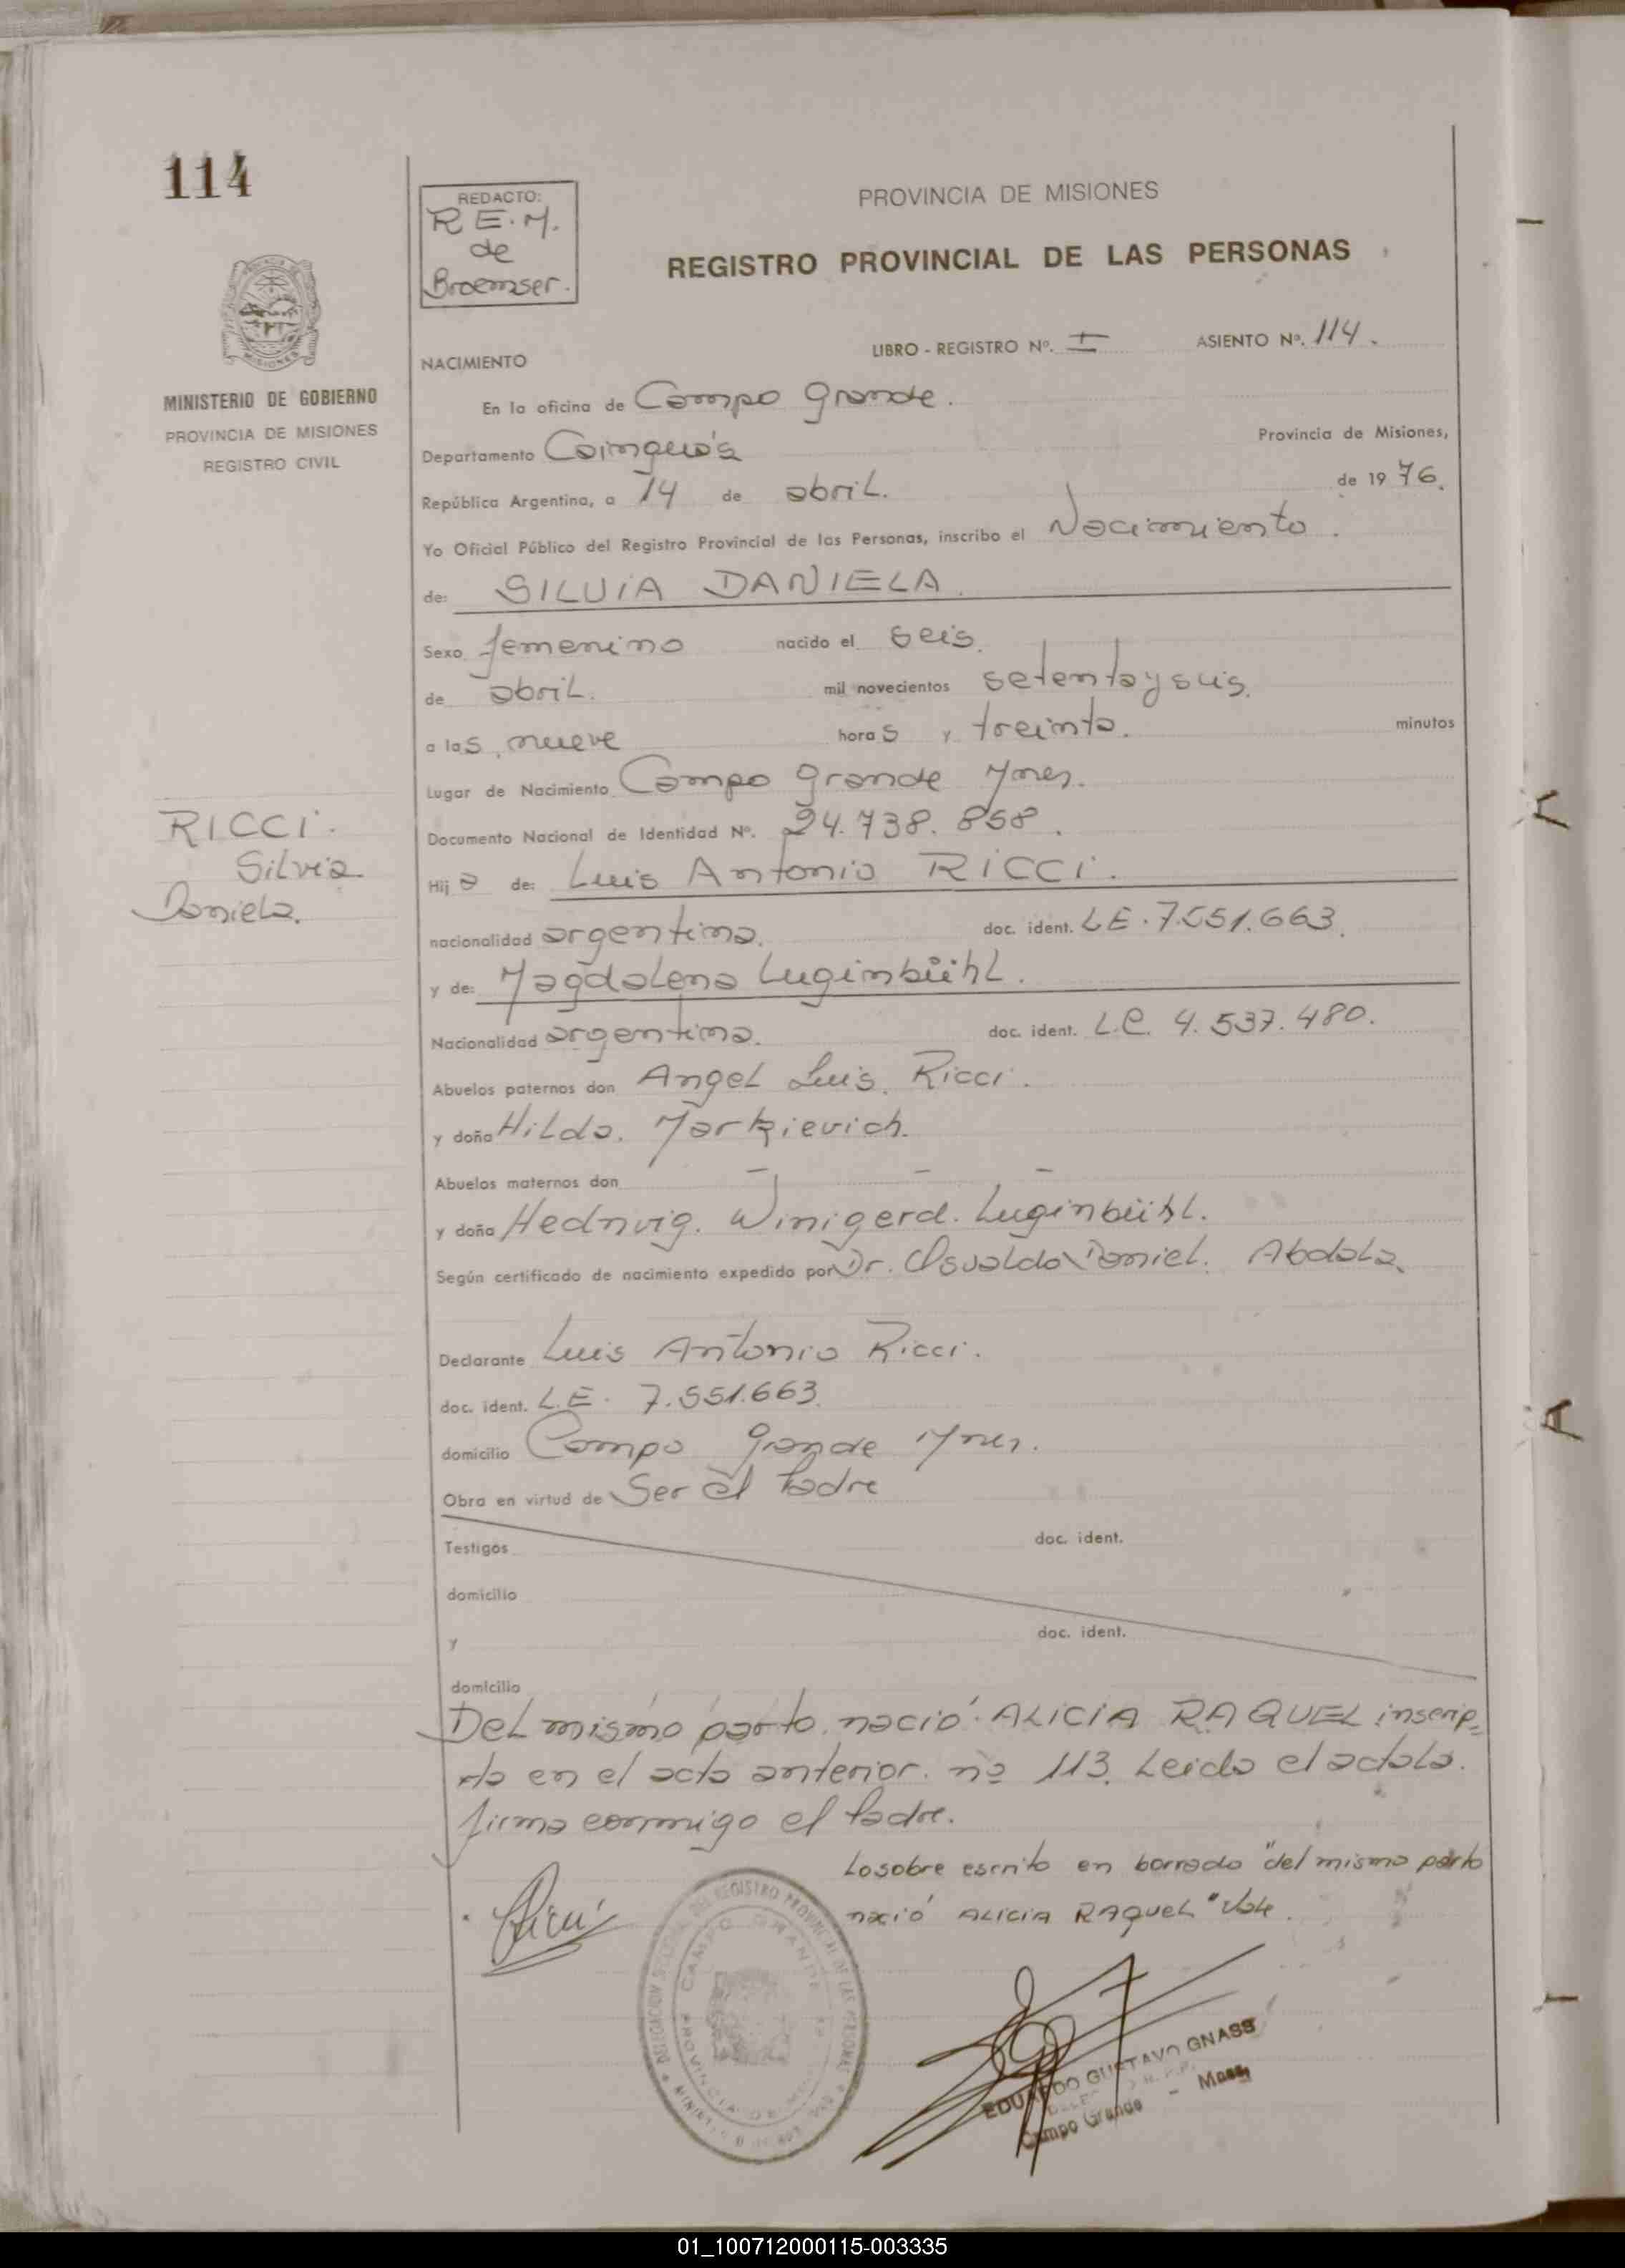 114
REDACTO:
R.E.M.
de
Broemser.
PROVINCIA DE MISIONES
REGISTRO PROVINCIAL DE LAS PERSONAS
MINISTERIO DE GOBIERNO
PROVINCIA DE MISIONES
REGISTRO CIVIL
NACIMIENTO
LIBRO - REGISTRO Nº. I ASIENTO Nº. 114.
En la oficina de Campo Grande.
Departamento Cainguás Provincia de Misiones,
República Argentina, a 14 de abril. de 1976.
Yo Oficial Público del Registro Provincial de las Personas, inscribo el Nacimiento.
de: SILVIA DANIELA.
Sexo femenino nacido el seis.
de abril. mil novecientos setentayseis.
a las nueve horas y treinta. minutos
Lugar de Nacimiento Campo Grande Mnes.
Documento Nacional de Identidad Nº. 24.738.858.
RICCI.
Silvia
Daniela.
Hija de: Luis Antonio RICCI.
nacionalidad argentina. doc. ident. LE. 7.551.663.
y de: Magdalena Luginbühl.
Nacionalidad argentina. doc. ident. L.C. 4.537.480.
Abuelos paternos don Angel Luis. Ricci.
y doña Hilda. Markievich.
Abuelos maternos don — — —
y doña Hednvig. Winigerd. Luginbühl.
Según certificado de nacimiento expedido por Dr. Osvaldo Daniel. Abdala.
Declarante Luis Antonio Ricci.
doc. ident. L.E. 7.551.663.
domicilio Campo Grande Mnes.
Obra en virtud de Ser el Padre
Testigos doc. ident.
domicilio
y doc. ident.
domicilio
Del mismo parto nació ALICIA RAQUEL inscrip=
ta en el acta anterior. nº 113. Leida el acta la.
firma conmigo el Padre.
Lo sobre escrito en borrado "del mismo parto
nació ALICIA RAQUEL" Vale.
Ricci
DELEGACION DEL REGISTRO PROVINCIAL DE LAS PERSONAS
CAMPO GRANDE
PROVINCIA DE
EDUARDO GUSTAVO GNASS
Campo Grande - Mnes.
01_100712000115-003335